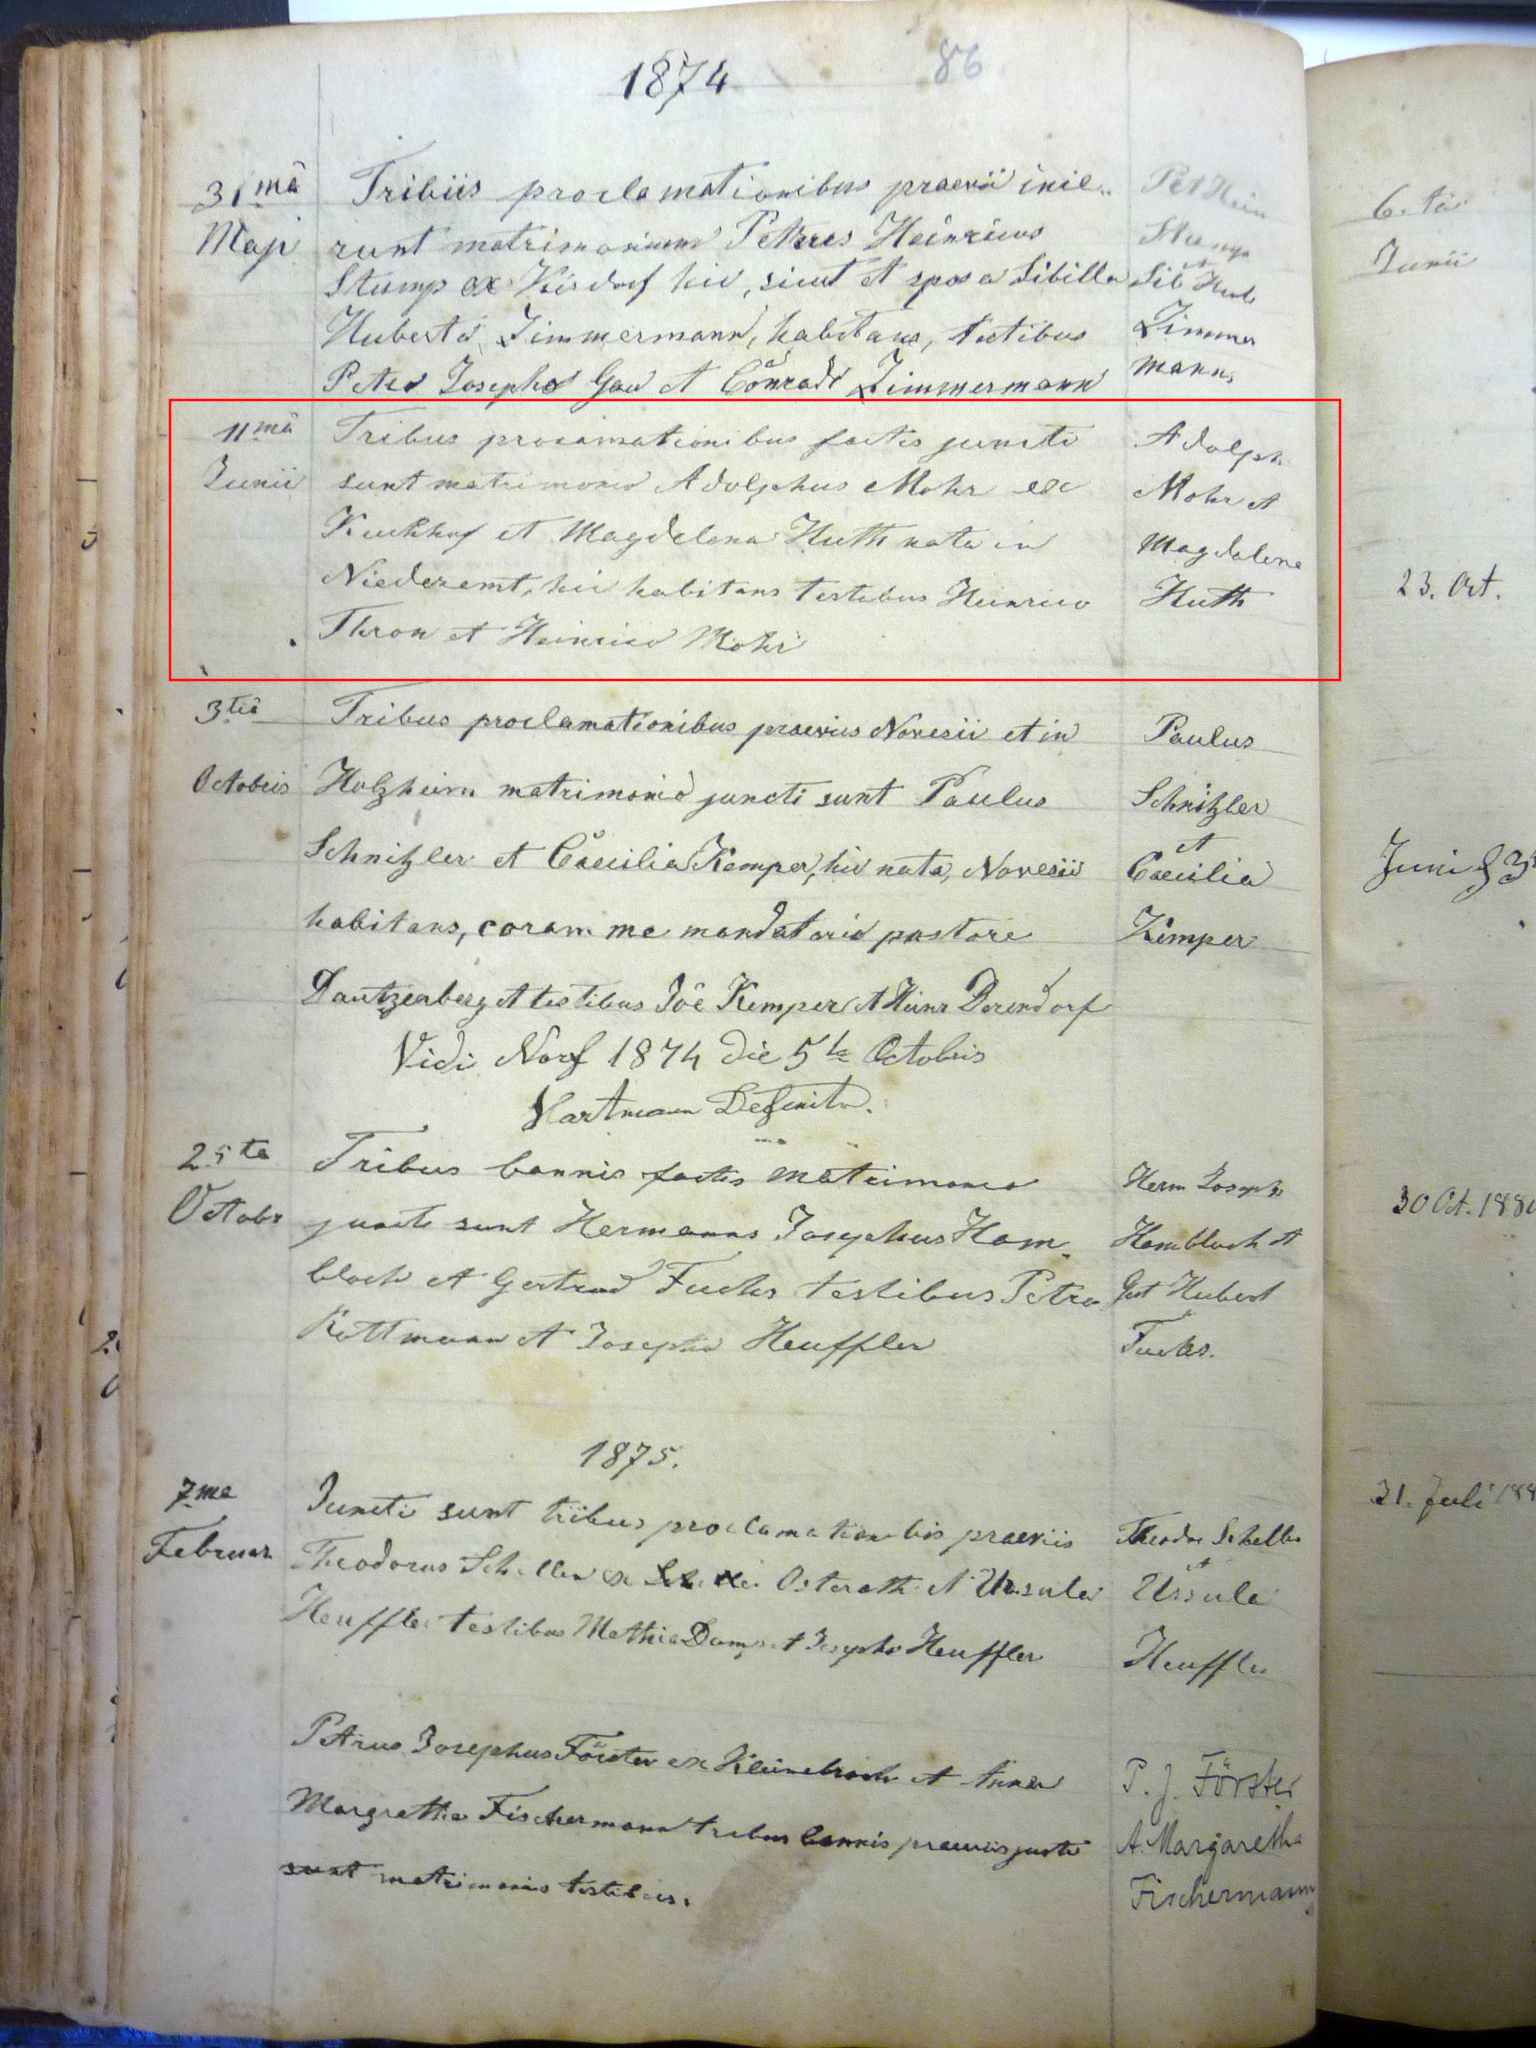 1874
86
31mâ
Maji
Tribiis proclamationibus praevii inie-
runt matrimonium Petrus Heinricus
Stump ex Kirdorf hic, sicut et sposa Sibilla
Huberta Zimmermann, habitans, testibus
Petro Josepho Gau et Conrado Zimmermann
Pet Hein
Stump
et
Sib Hub
Zimmer
mann
11mâ
Junii
Tribus procamationibus factis juncti
sunt matrimonio Adolphus Mohr ex
Kuckhof et Magdelena Huth nata in
Niederemt, hic habitans testibus Heinrico
Thron et Heinrico Mohr
Adolph
Mohr et
Magdalena
Huth
3tiâ
Octobris
Tribus proclamationibus praeviis Novesii et in
Holzheim matrimonio juncti sunt Paulus
Schnitzler et Caecilia Kemper, hic nata, Novesii
habitans, coram me mandatario pastore
Dautzenberg et testibus Joê Kemper et Heinr Derendorf
Vidi Norf 1874 die 5ta Octobris
Hartmann Definitor.
Paulus
Schnitzler
et
Caecilia
Kemper
25ta
Octobr
Tribus bannis factis matrimonio
juncti sunt Hermanns Josephus Ham-
bloch et Gertrud Fuchs testibus Petro
Rottmann et Josepho Heuffler
Herm Joseph
Hambloch et
Gert Hubert
Fuchs.
1875.
7ma
Februar
Juncti sunt tribus proclamationibis praeviis
Theodorus Scheller ex Osterath et Ursula
Heuffler testibus Mathia Damp et Josepho Heuffler
Theodor Scheller
et
Ursula
Heuffler
Petrus Josephus Förster ex et Anna
Margretha Fischermann tribus bannis praeviis juncti
sunt matrimonio testibus.
P. J. Förster
A. Margaretha
Fischermann
6. ta
Junii
23. Oct.
Juni
30 Oct. 188
21. Juli 188